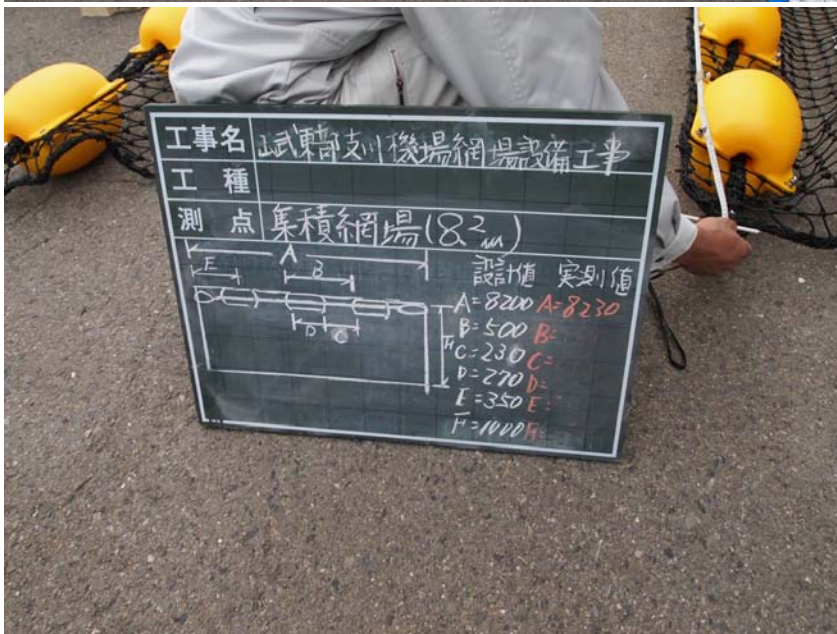 工事名 山武東部支川機場網場設備工事
工種
測点 集積網場(8.2m)
A
E B
D C
F
設計値 実測値
A=8200 A=8230
B=500 B=
C=230 C=
D=270 D=
E=350 E=
F=1000 F=